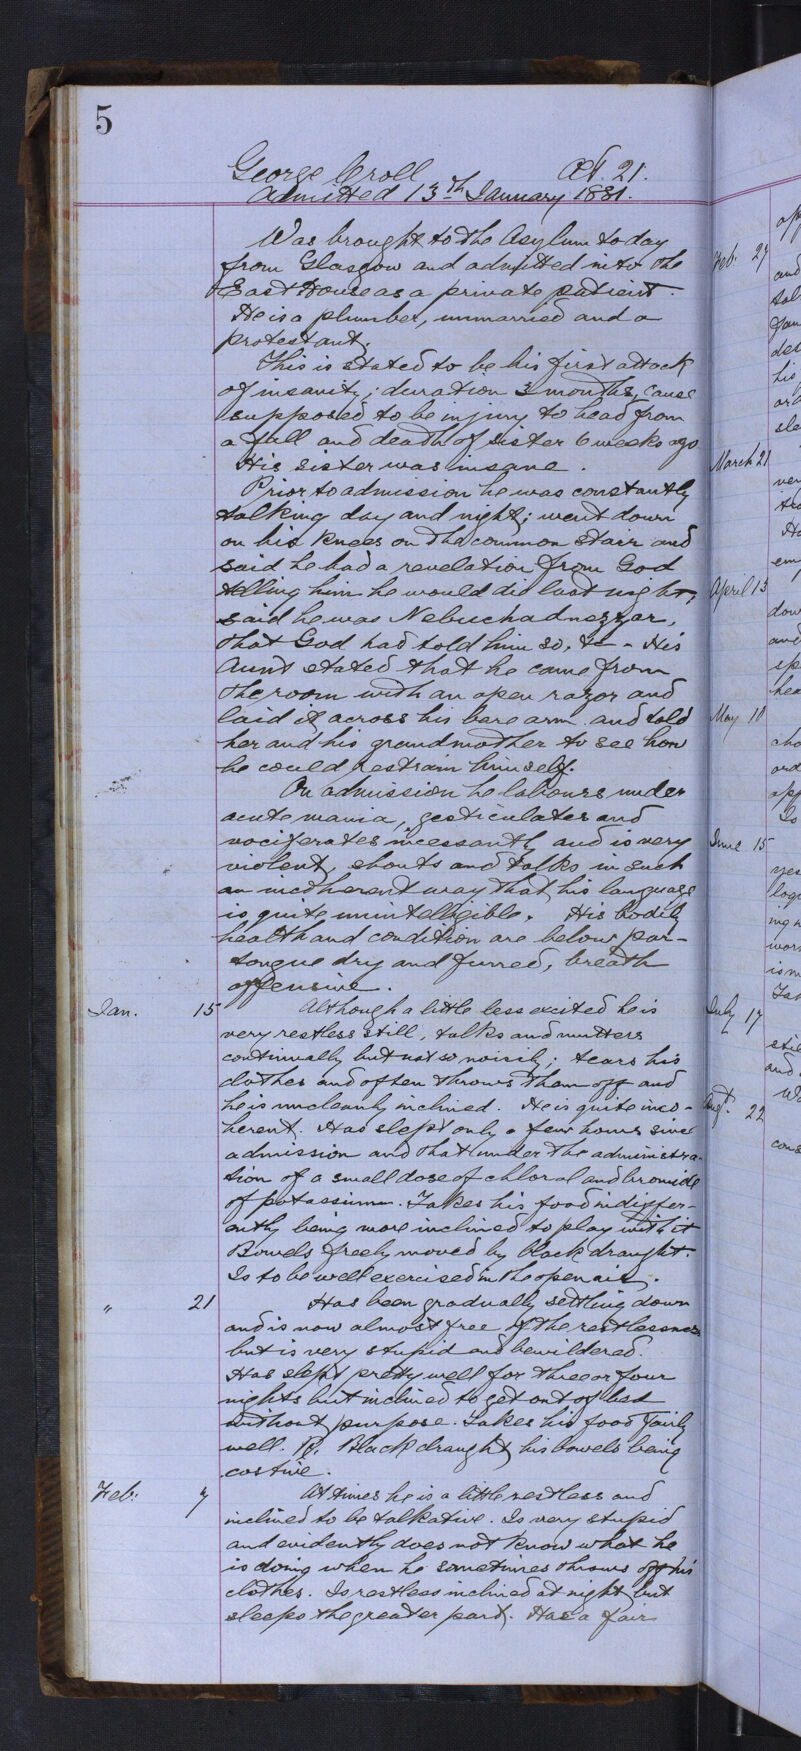 5
George Croll Aet. 21.
Admitted 13th January 1881.
Was brought to the Asylum to day
from Glasgow and admitted into the
East House as a private patient.
He is a plumber, unmarried and a
protestant.
This is stated to be his first attack
of insanity; duration 3 months, cause
supposed to be injury to head from
a fall and death of sister 6 weeks ago
His sister was insane.
Prior to admission he was constantly
talking day and night; went down
on his knees on the common stair and
said he had a revelation from God
telling him he would die last night,
said he was Nebuchadnezzar,
that God had told him so, &c - His
Aunt stated that he came from
the room with an open razor and
laid it across his bare arm and told
her and his grandmother to see how
he could restrain himself.
On admission he labours under
acute mania, gesticulates and
vociferates incessantly and is very
violent, shouts and talks in such
an incoherent way that his language
is quite unintelligible. His bodily
health and condition are below par -
tongue dry and furred, breath
offensive.
Jan. 15 Although a little less excited he is
very restless still, talks and mutters
continually but not so noisily; tears his
clothes and often throws them off and
he is uncleanly inclined. He is quite inco-
herent. Has slept only a few hours since
admission and that under the administra-
tion of a small dose of chloral and bromide
of potassium. Takes his food indiffer-
ently being more inclined to play with it
Bowels freely moved by black draught.
Is to be well exercised in the open air.
" 21 Has been gradually settling down
and is now almost free of the restlessness
but is very stupid and bewildered.
Has slept pretty well for three or four
nights but inclined to get out of bed
without purpose. Takes his food fairly
well. Rx Black draught, his bowels being
costive.
Feb: 7 At times he is a little restless and
inclined to be talkative. Is very stupid
and evidently does not know what he
is doing when he sometimes throws off his
clothes. Is restless inclined at night but
sleeps the greater part. Has a fair
Feb. 27
and
his
March 21
April 13
and
May 10
June 15
July 17
and
Augt. 22